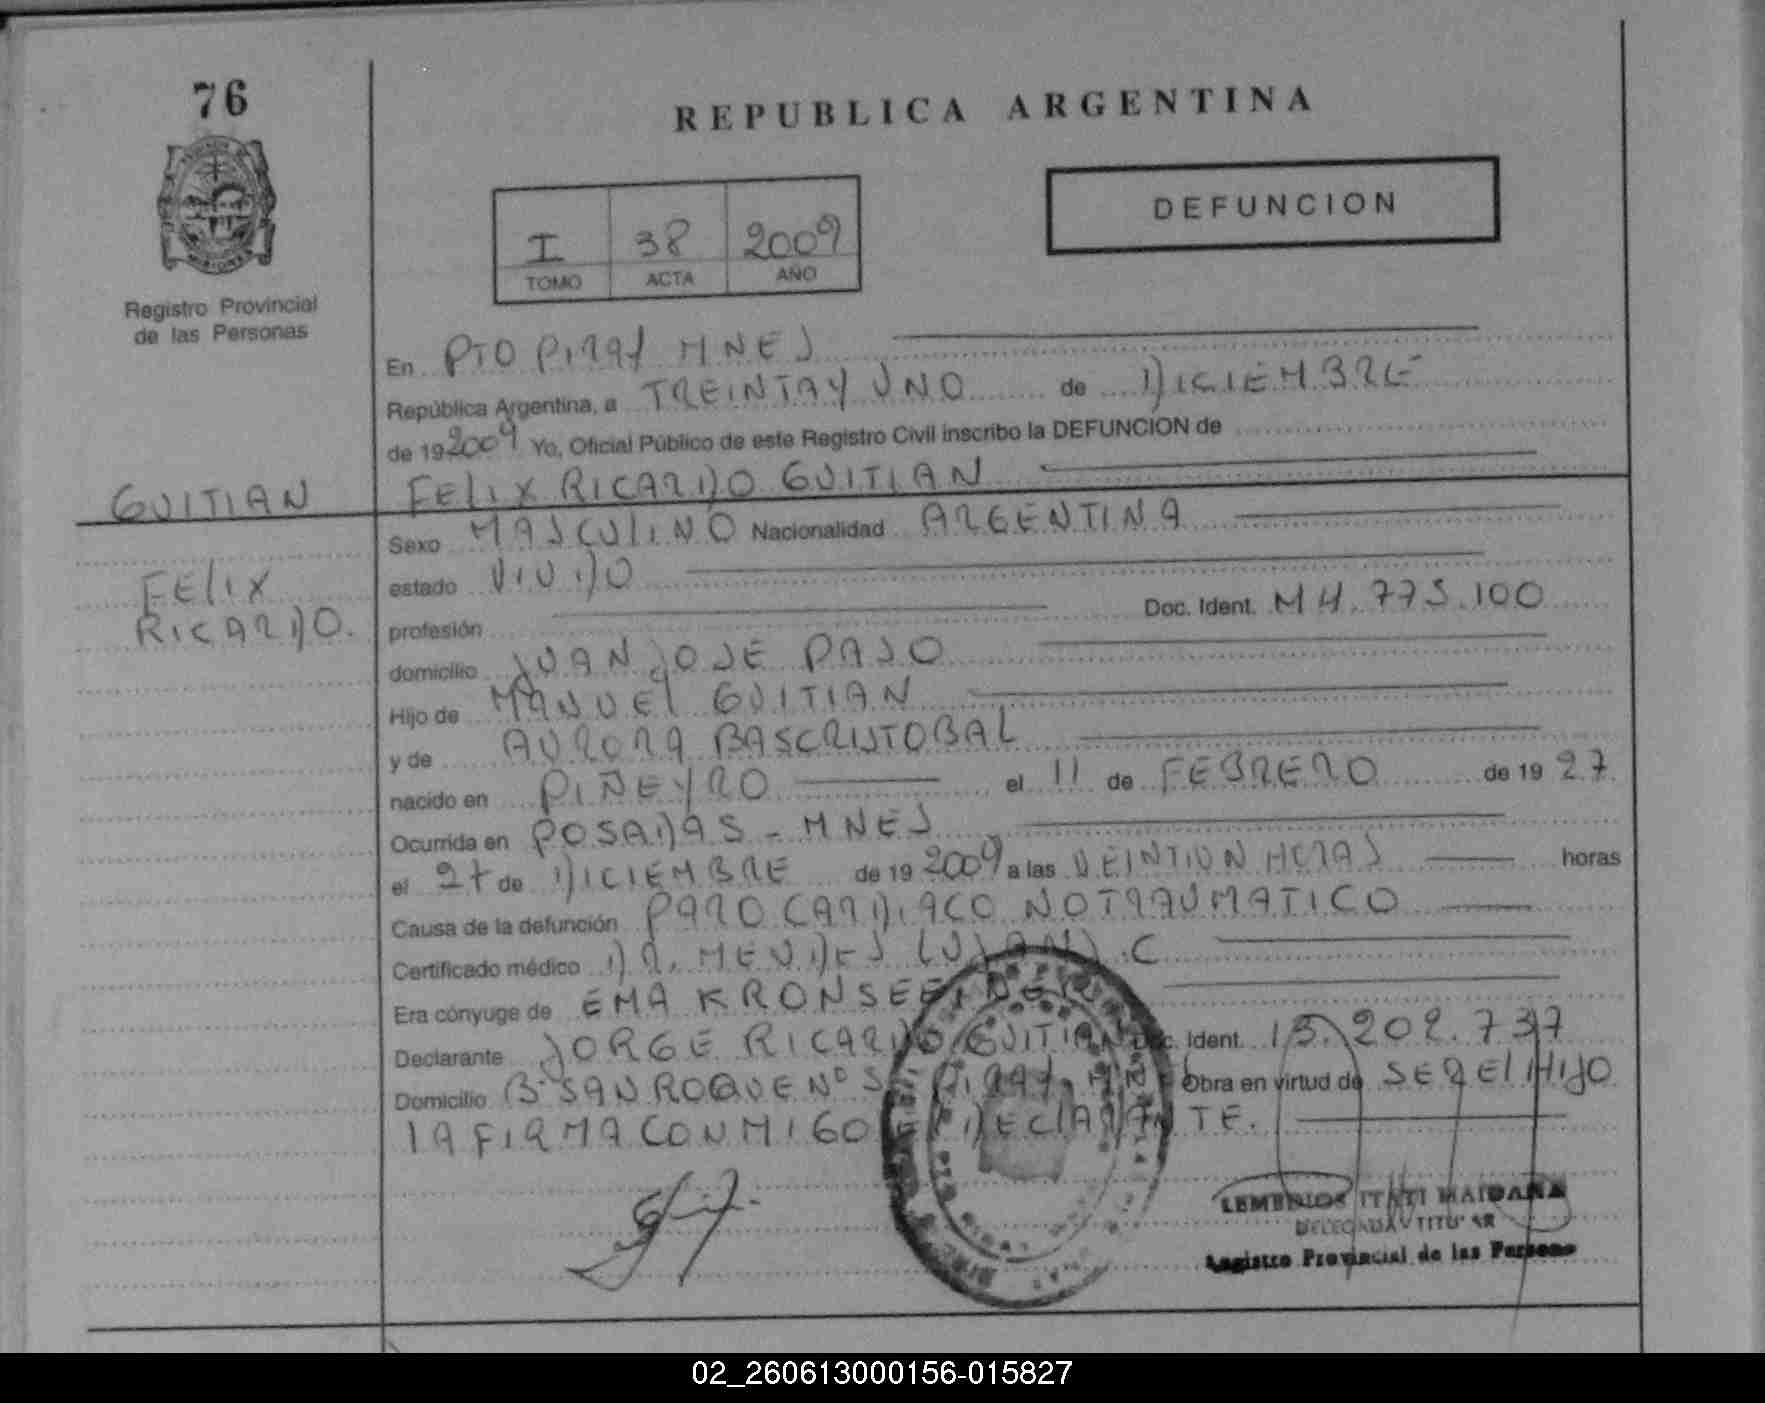 76
REPUBLICA ARGENTINA
DEFUNCION
I 38 2009
TOMO ACTA AÑO
Registro Provincial
de las Personas
En PTO PIRAY MNES
República Argentina, a TREINTA Y UNO de DICIEMBRE
de 19 2009 Yo, Oficial Público de este Registro Civil inscribo la DEFUNCION de
GUITIAN FELIX RICARDO GUITIAN
FELIX
RICARDO.
Sexo MASCULINO Nacionalidad ARGENTINA
estado VIUDO
profesión Doc. Ident. M 4.775.100
domicilio JUAN JOSE PASO
Hijo de MANUEL GUITIAN
y de AURORA BASCRISTOBAL
nacido en PIÑEYRO el 11 de FEBRERO de 19 27
Ocurrida en POSADAS - MNES
el 27 de DICIEMBRE de 19 2009 a las VEINTIUN HORAS horas
Causa de la defunción PARO CARDIACO NO TRAUMATICO
Certificado médico DR. MENDES C
Era cónyuge de EMA
Declarante JORGE RICARDO GUITIAN Doc. Ident. 13.202.737
Domicilio Bº SAN ROQUE Nº PIRAY. MNES Obra en virtud de SER EL HIJO
LA FIRMA CONMIGO EL DECLARANTE.
ITATI MAIDANA
DELEGADA TITULAR
Registro Provincial de las Personas
02_260613000156-015827